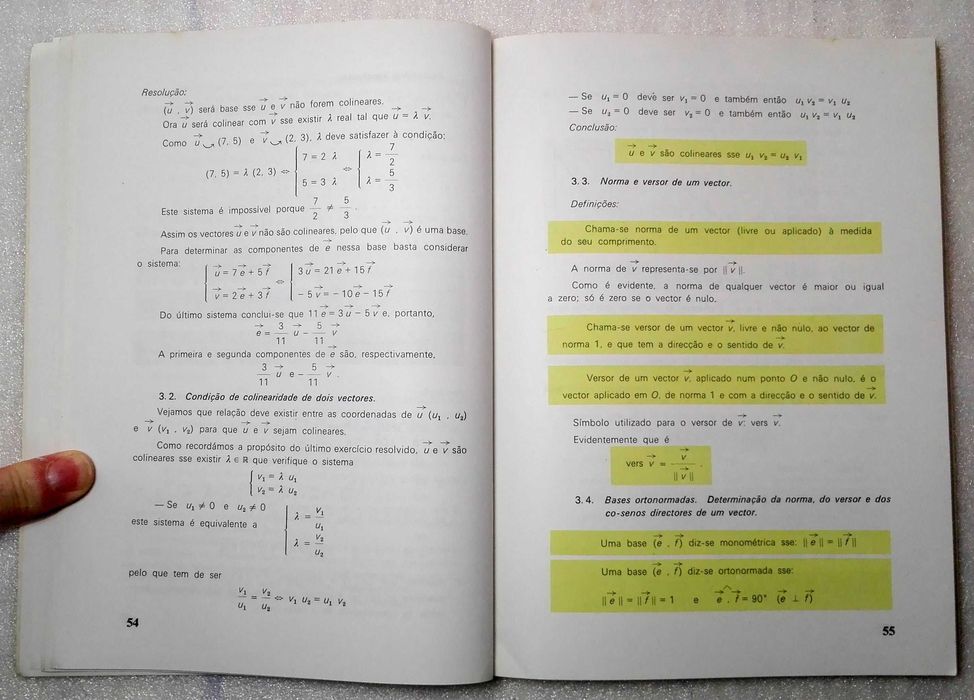 Resolução:
(u⃗ , v⃗) será base sse u⃗ e v⃗ não forem colineares.
Ora u⃗ será colinear com v⃗ sse existir λ real tal que u⃗ = λ v⃗.
Como u⃗ ⤻ (7, 5) e v⃗ ⤻ (2, 3), λ deve satisfazer à condição:
(7, 5) = λ (2, 3) ⇔ { 7 = 2 λ ; 5 = 3 λ ⇔ { λ = 7/2 ; λ = 5/3
Este sistema é impossível porque 7/2 ≠ 5/3 .
Assim os vectores u⃗ e v⃗ não são colineares, pelo que (u⃗ , v⃗) é uma base.
Para determinar as componentes de e⃗ nessa base basta considerar
o sistema:
{ u⃗ = 7 e⃗ + 5 f⃗ { 3 u⃗ = 21 e⃗ + 15 f⃗
{ v⃗ = 2 e⃗ + 3 f⃗ { – 5 v⃗ = – 10 e⃗ – 15 f⃗
Do último sistema conclui-se que 11 e⃗ = 3 u⃗ – 5 v⃗ e, portanto,
e⃗ = 3/11 u⃗ – 5/11 v⃗
A primeira e segunda componentes de e⃗ são, respectivamente,
3/11 u⃗ e – 5/11 v⃗ .
3. 2. Condição de colinearidade de dois vectores.
Vejamos que relação deve existir entre as coordenadas de u⃗ (u₁ , u₂)
e v⃗ (v₁ , v₂) para que u⃗ e v⃗ sejam colineares.
Como recordámos a propósito do último exercício resolvido, u⃗ e v⃗ são
colineares sse existir λ ∈ ℝ que verifique o sistema
{ v₁ = λ u₁
{ v₂ = λ u₂
— Se u₁ ≠ 0 e u₂ ≠ 0
este sistema é equivalente a { λ = v₁/u₁ ; λ = v₂/u₂
pelo que tem de ser
v₁/u₁ = v₂/u₂ ⇔ v₁ u₂ = u₁ v₂
54
— Se u₁ = 0 deve ser v₁ = 0 e também então u₁ v₂ = v₁ u₂
— Se u₂ = 0 deve ser v₂ = 0 e também então u₁ v₂ = v₁ u₂
Conclusão:
u⃗ e v⃗ são colineares sse u₁ v₂ = u₂ v₁
3. 3. Norma e versor de um vector.
Definições:
Chama-se norma de um vector (livre ou aplicado) à medida
do seu comprimento.
A norma de v⃗ representa-se por || v⃗ ||.
Como é evidente, a norma de qualquer vector é maior ou igual
a zero; só é zero se o vector é nulo.
Chama-se versor de um vector v⃗, livre e não nulo, ao vector de
norma 1, e que tem a direcção e o sentido de v⃗.
Versor de um vector v⃗, aplicado num ponto O e não nulo, é o
vector aplicado em O, de norma 1 e com a direcção e o sentido de v⃗.
Símbolo utilizado para o versor de v⃗: vers v⃗.
Evidentemente que é
vers v⃗ = v⃗ / || v⃗ || .
3. 4. Bases ortonormadas. Determinação da norma, do versor e dos
co-senos directores de um vector.
Uma base (e⃗ , f⃗) diz-se monométrica sse: || e⃗ || = || f⃗ ||
Uma base (e⃗ , f⃗) diz-se ortonormada sse:
|| e⃗ || = || f⃗ || = 1 e e⃗ ^, f⃗ = 90° (e⃗ ⊥ f⃗)
55